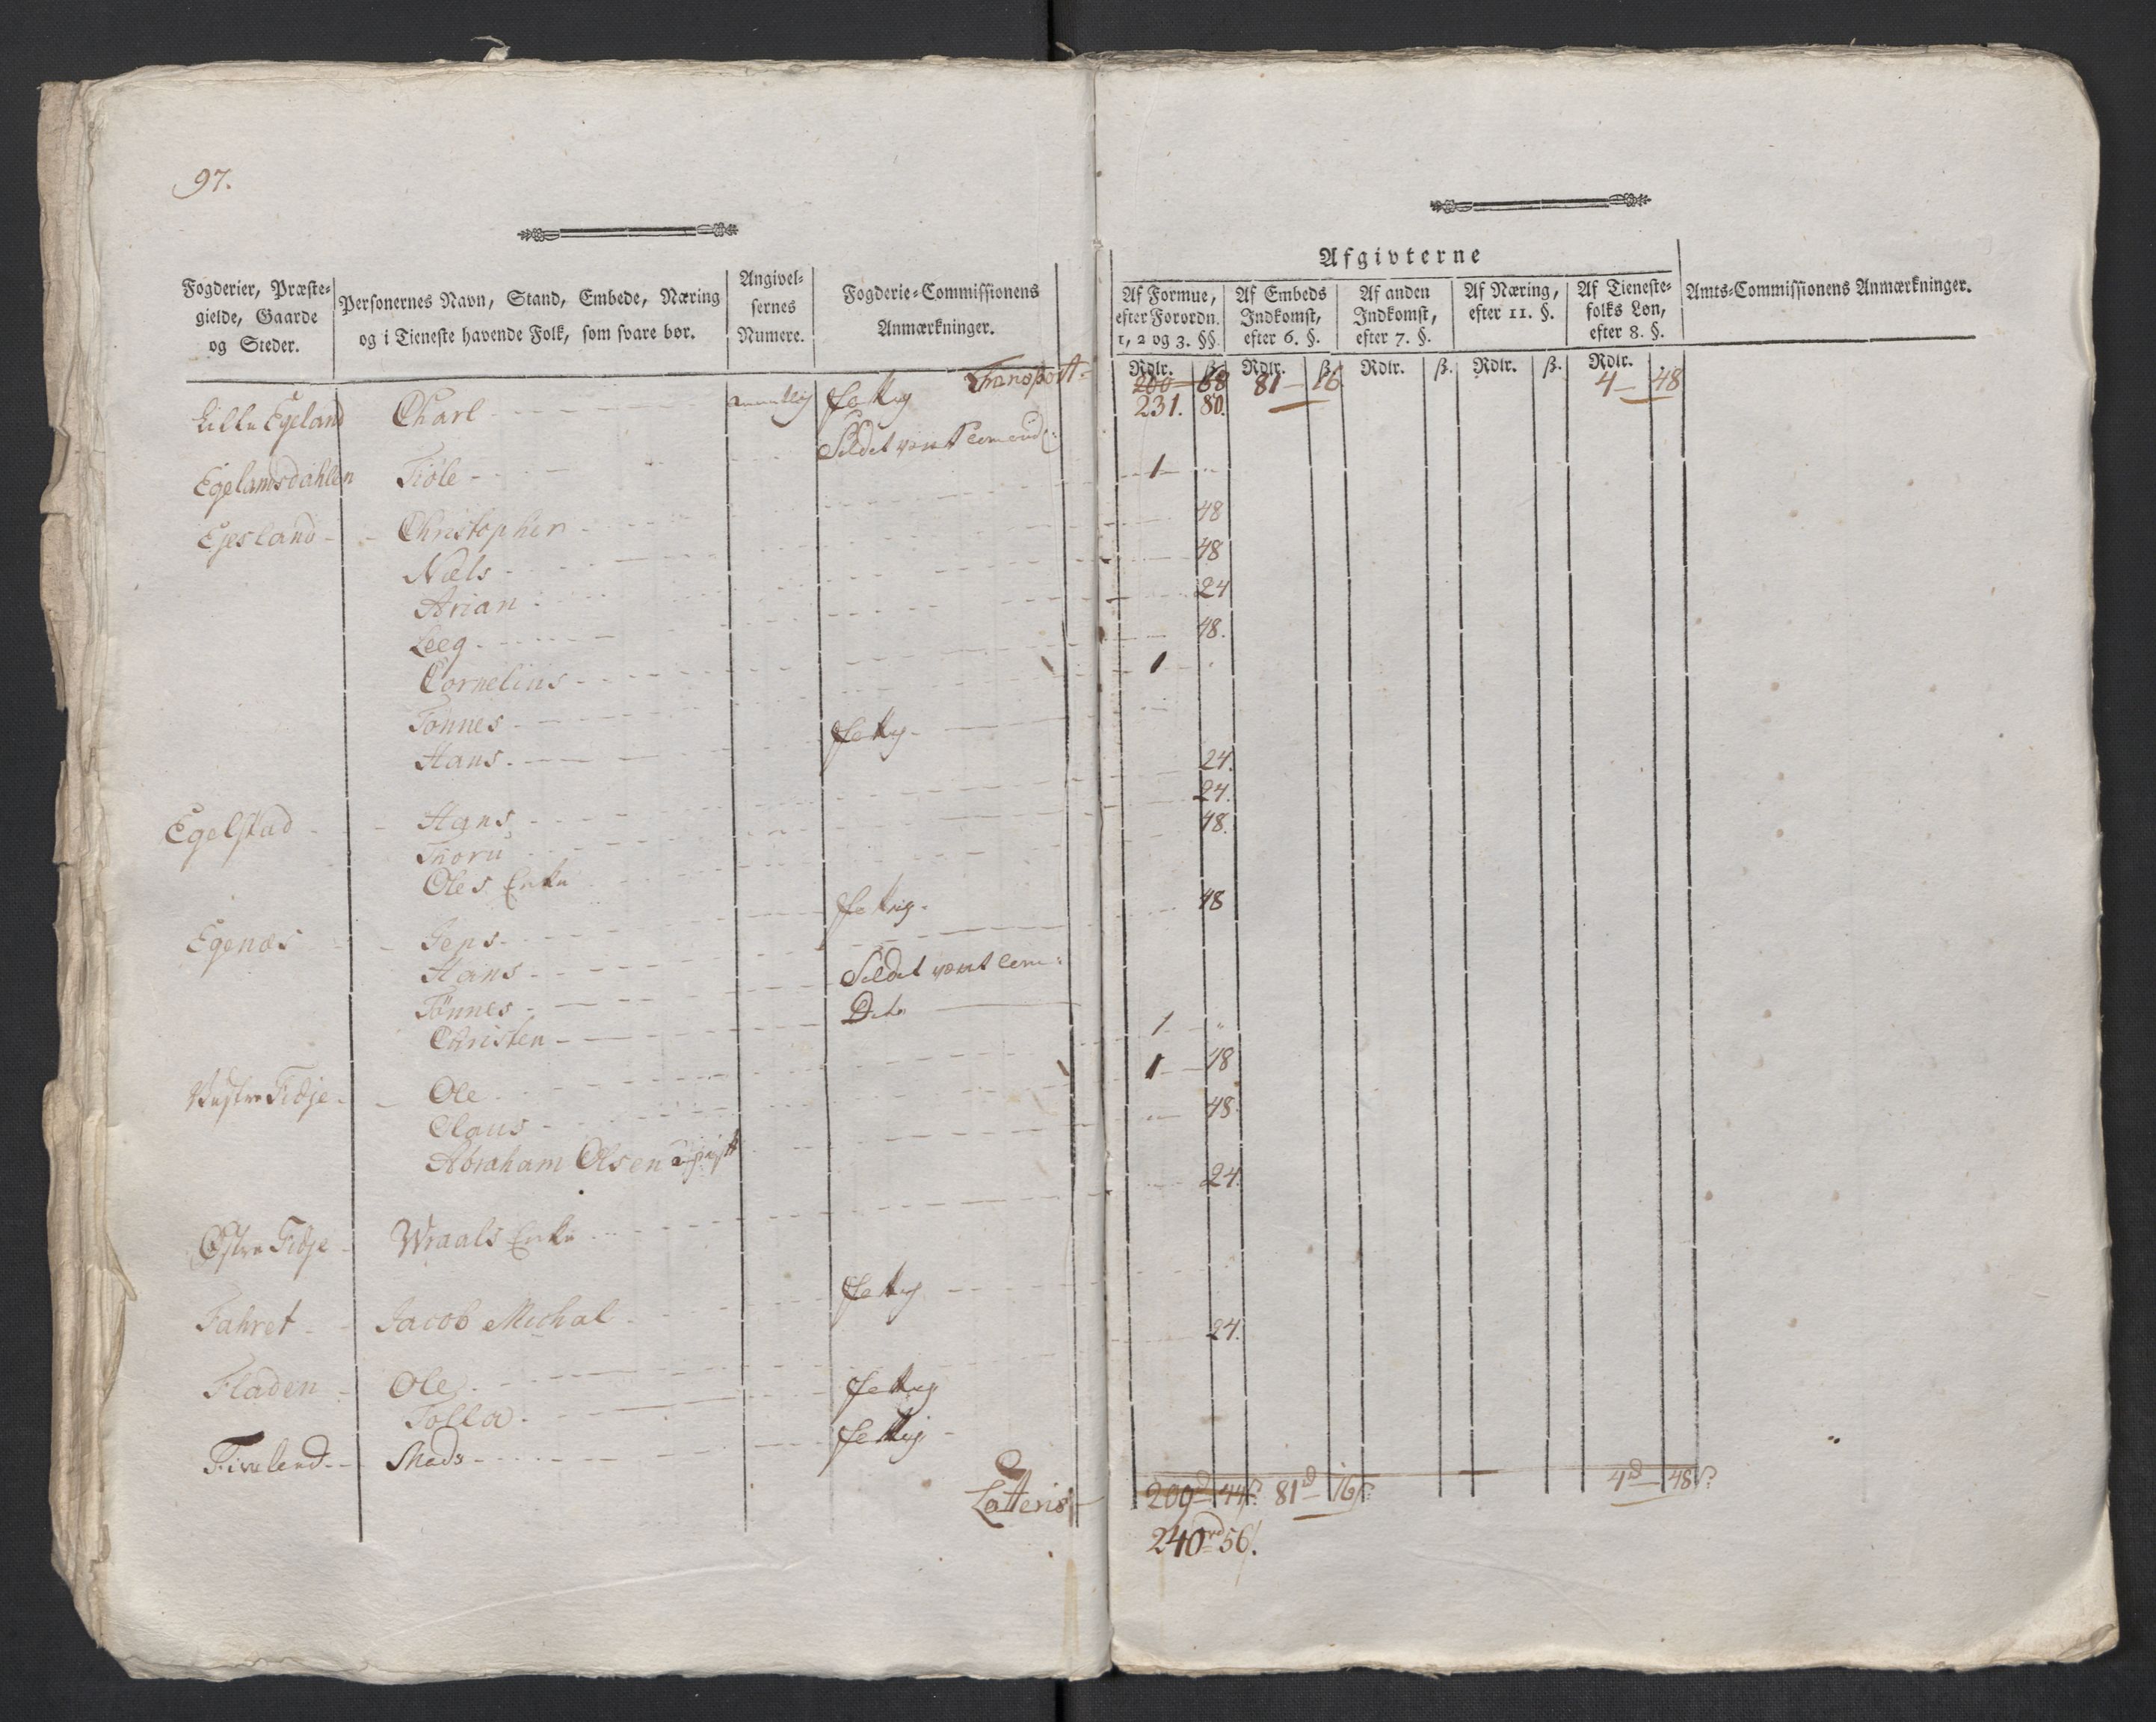 97.
Fogderier, Præste-
gielde, Gaarde
og Steder.
Personernes Navn, Stand, Embede, Næring
og i Tieneste havende Folk, som svare bør.
Angivel-
sernes
Numere.
Fogderie-Commissionens
Anmærkninger.
Afgivterne
Af Formue,
efter Forordn.
1, 2 og 3. §§.
Af Embeds
Indkomst,
efter 6. §.
Af anden
Indkomst,
efter 7. §.
Af Næring,
efter 11. §.
Af Tieneste-
folks Løn,
efter 8. §.
Amts-Commissionens Anmærkninger.
Rdlr. ß. Rdlr. ß. Rdlr. ß. Rdlr. ß. Rdlr.
Transport 200 68 81 16 4 48
231. 80.
Lille Egeland Charl fattig
Soldat været
Egelandsdahlen Tiøle 1
Ejesland Christopher 48
Næls 48
Arian 24
Leeg 48.
Cornelius 1
Tønnes fattig
Hans 24.
Egelstad Hans 24.
Thoru 48.
Oles Enke fattig
Egenæs Jens 48
Hans Soldat været
Tønnes Dito
Christen 1
Vestre Fidje Ole 1 48
Claus 48
Abraham Olsen
24.
Østre Fidje Wraals Enke
Fahret Jacob Michal fattig
24.
Fladen Ole
Tolla fattig
Fiveland Mads fattig
Latteris 209 44 81 16 4 48
240 rd 56.